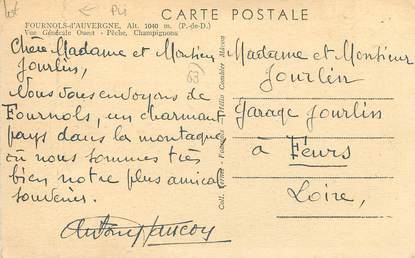 CARTE POSTALE
FOURNOLS-d'AUVERGNE, Alt. 1040 m. (P.-de-D.)
Vue Générale Ouest - Pêche, Champignons
Pli
63
Chère Madame et Monsieur
Jourlin,
Nous vous envoyons de
Fournols, un charmant
pays dans la montagne
où nous sommes très
bien notre plus amical
souvenir.
Madame et Monsieur
Jourlin
Garage Jourlin
à Feurs
Loire,
Hélio Combier Mâcon